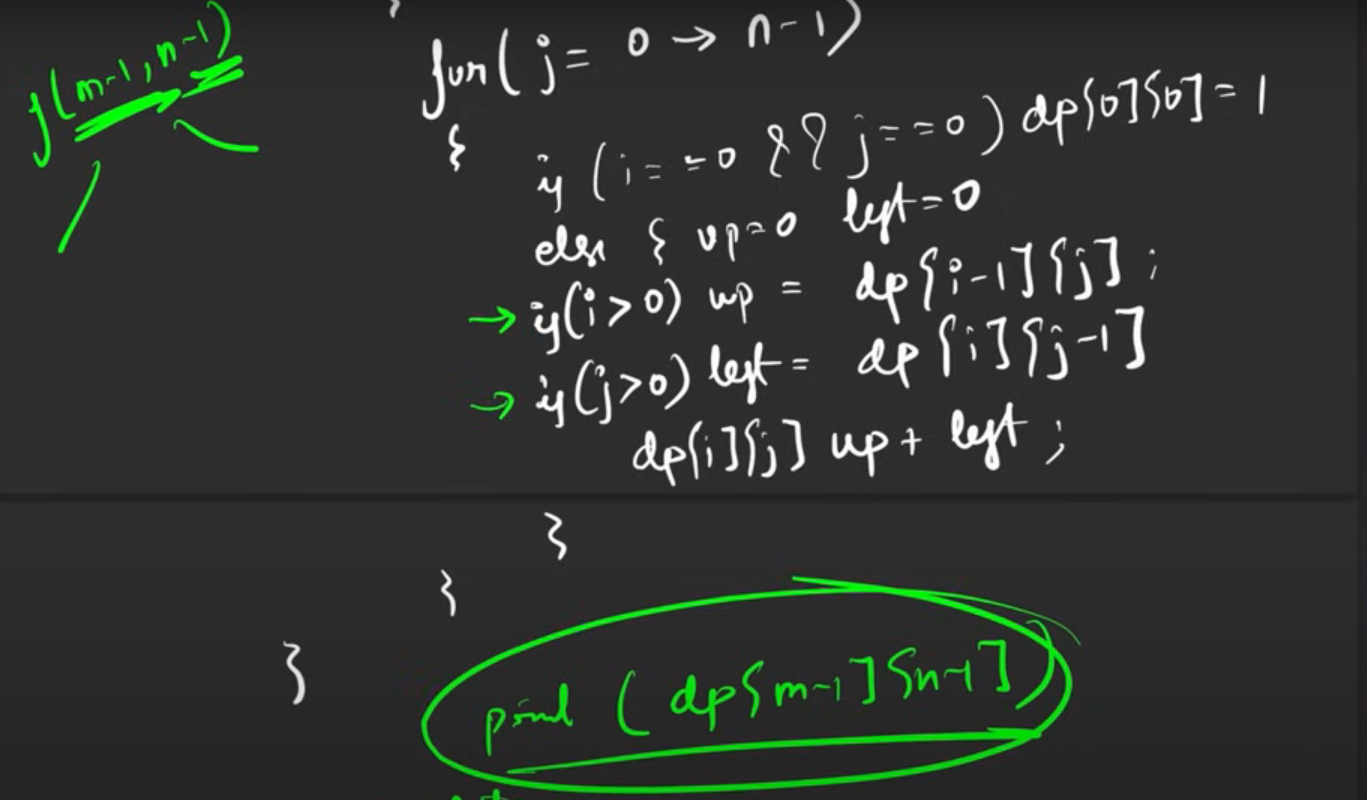 }
f(m-1, n-1)
for(j = 0 → n-1)
{
if (i==0 && j==0) dp[0][0] = 1
else { up=0 left=0
→ if(i>0) up = dp[i-1][j];
→ if(j>0) left = dp[i][j-1]
dp[i][j] up + left;
}
}
}
print (dp[m-1][n-1])